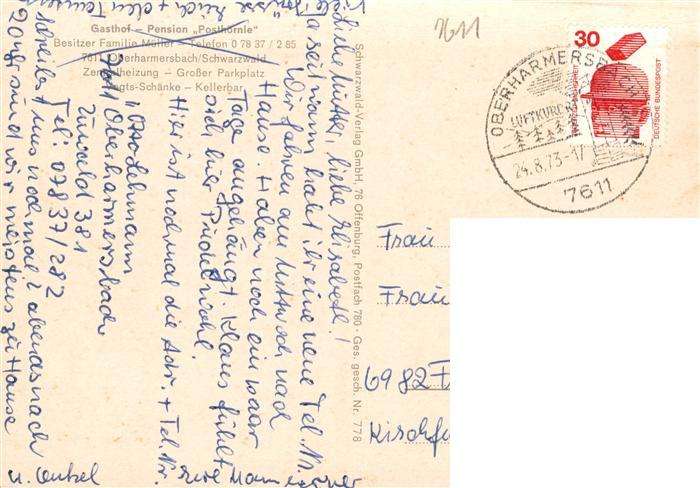 Gasthof – Pension „Posthörnle“
Besitzer Familie Müller – Telefon 0 78 37 / 2 85
7611 Oberharmersbach/Schwarzwald
Zentralheizung – Großer Parkplatz
Vogts-Schänke – Kellerbar
Schwarzwald-Verlag GmbH, 76 Offenburg, Postfach 780 · Ges. gesch. Nr. 778
7611
30
DEUTSCHE BUNDESPOST
OBERHARMERSBACH
LUFTKURORT
24.8.73-17
7611
Frau
Frau
6982 F
Kirchf
Liebe Mutter, liebe Elisabeth!
habt ihr eine neue Tel. Nr.
Wir fahren am Mittwoch nach
Hause + haben noch ein paar
Tage angehängt. Klaus fühlt
sich hier sichtl. wohl.
Hier ist nochmal die Adr. + Tel. Nr.
Otto Lehmann
7611 Oberharmersbach
Zuwald 381
Tel: 07837/282
schreibt uns nochmal? abends nach
20 Uhr sind wir meistens zu Hause
u. Onkel